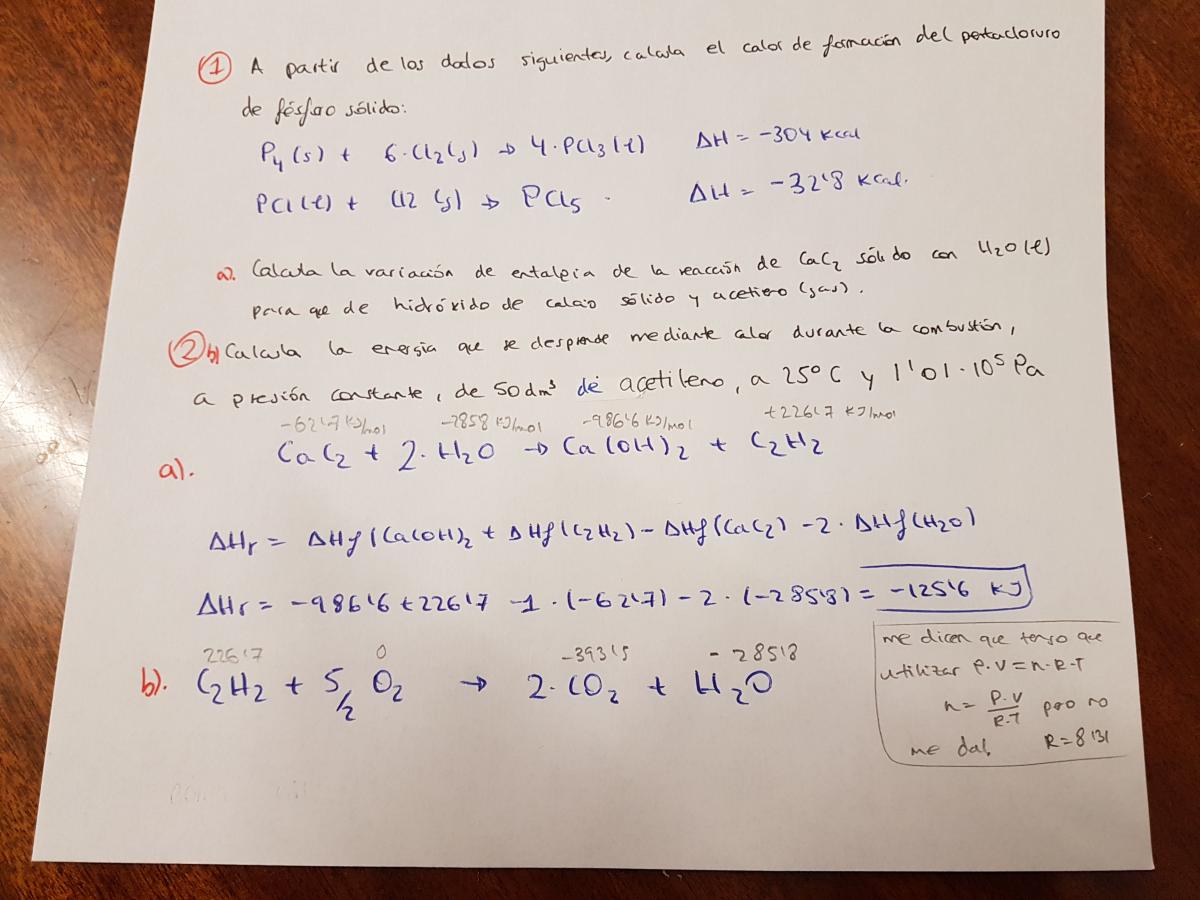 ① A partir de los datos siguientes, calcula el calor de formación del pentacloruro
de fósforo sólido:
P₄(s) + 6·Cl₂(g) → 4·PCl₃(l) ΔH = -304 Kcal
PCl(l) + Cl2(g) → PCl₅. ΔH = -32'8 Kcal.
a). Calcula la variación de entalpia de la reacción de CaC₂ sólido con H₂O(l)
para que de hidróxido de calcio sólido y acetileno (gas).
② b) Calcula la energía que se desprende mediante calor durante la combustión,
a presión constante, de 50dm³ de acetileno, a 25ºC y 1'01·10⁵ Pa
-62'7 KJ/mol -2858 KJ/mol -986'6 KJ/mol +226'7 KJ/mol
a). CaC₂ + 2·H₂O → Ca(OH)₂ + C₂H₂
ΔHr = ΔHf(Ca(OH)₂ + ΔHf(C₂H₂) - ΔHf(CaC₂) - 2·ΔHf(H₂O)
ΔHr = -986'6 + 226'7 - 1·(-62'7) - 2·(-285'8) = -125'6 KJ
226'7 0 -393'5 -285'8
b). C₂H₂ + 5/2 O₂ → 2·CO₂ + H₂O
me dicen que tengo que
utilizar P·V = n·R·T
n = P·V/R·T pero no
me da!. R = 8'31